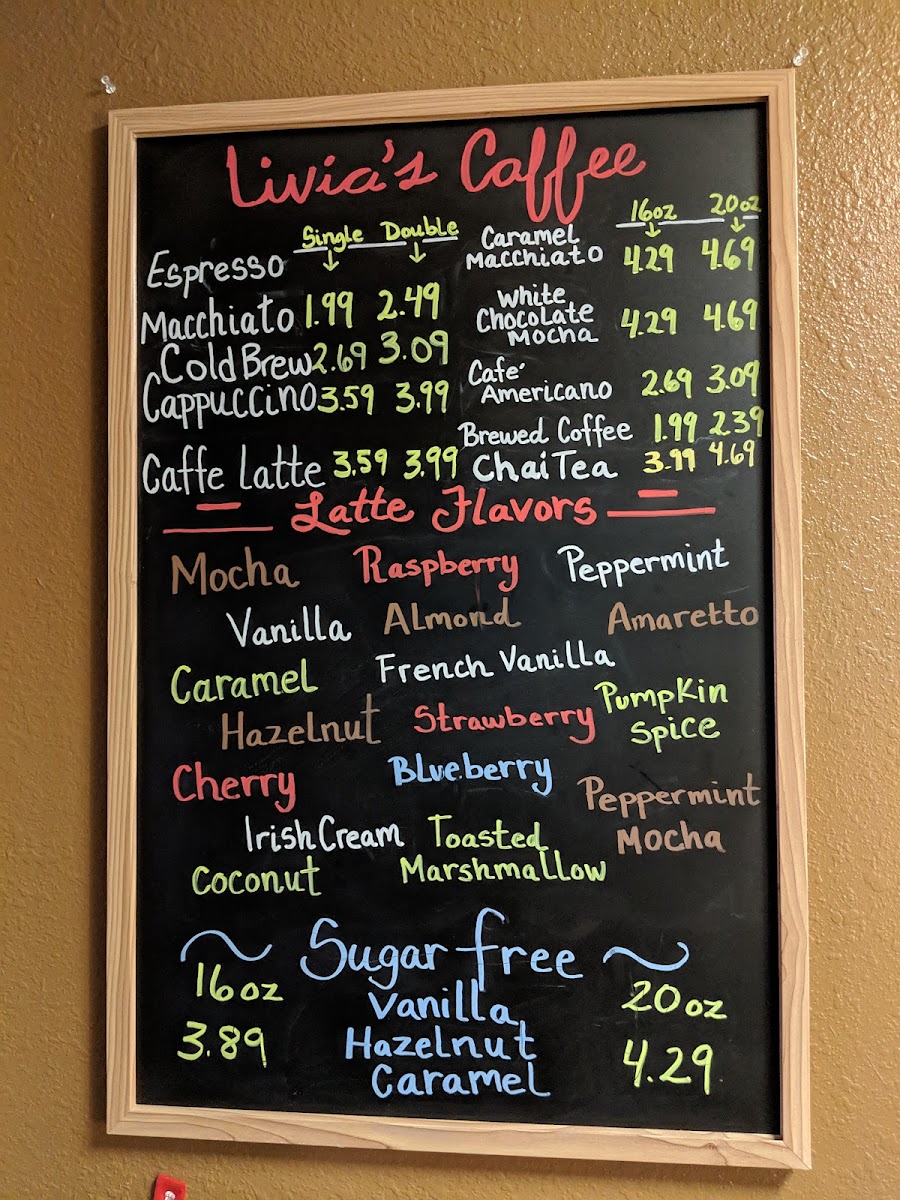 Livia's Coffee
Single Double
Espresso
Macchiato 1.99 2.49
Cold Brew 2.69 3.09
Cappuccino 3.59 3.99
Caffe Latte 3.59 3.99
16oz 20oz
Caramel
Macchiato 4.29 4.69
White
Chocolate 4.29 4.69
Mocha
Cafe'
Americano 2.69 3.09
Brewed Coffee 1.99 2.39
Chai Tea 3.99 4.69
Latte Flavors
Mocha Raspberry Peppermint
Vanilla Almond Amaretto
Caramel French Vanilla
Hazelnut Strawberry Pumpkin
Spice
Cherry Blueberry
Peppermint
Mocha
Irish Cream Toasted
Marshmallow
Coconut
Sugar free
16oz Vanilla 20oz
3.89 Hazelnut 4.29
Caramel